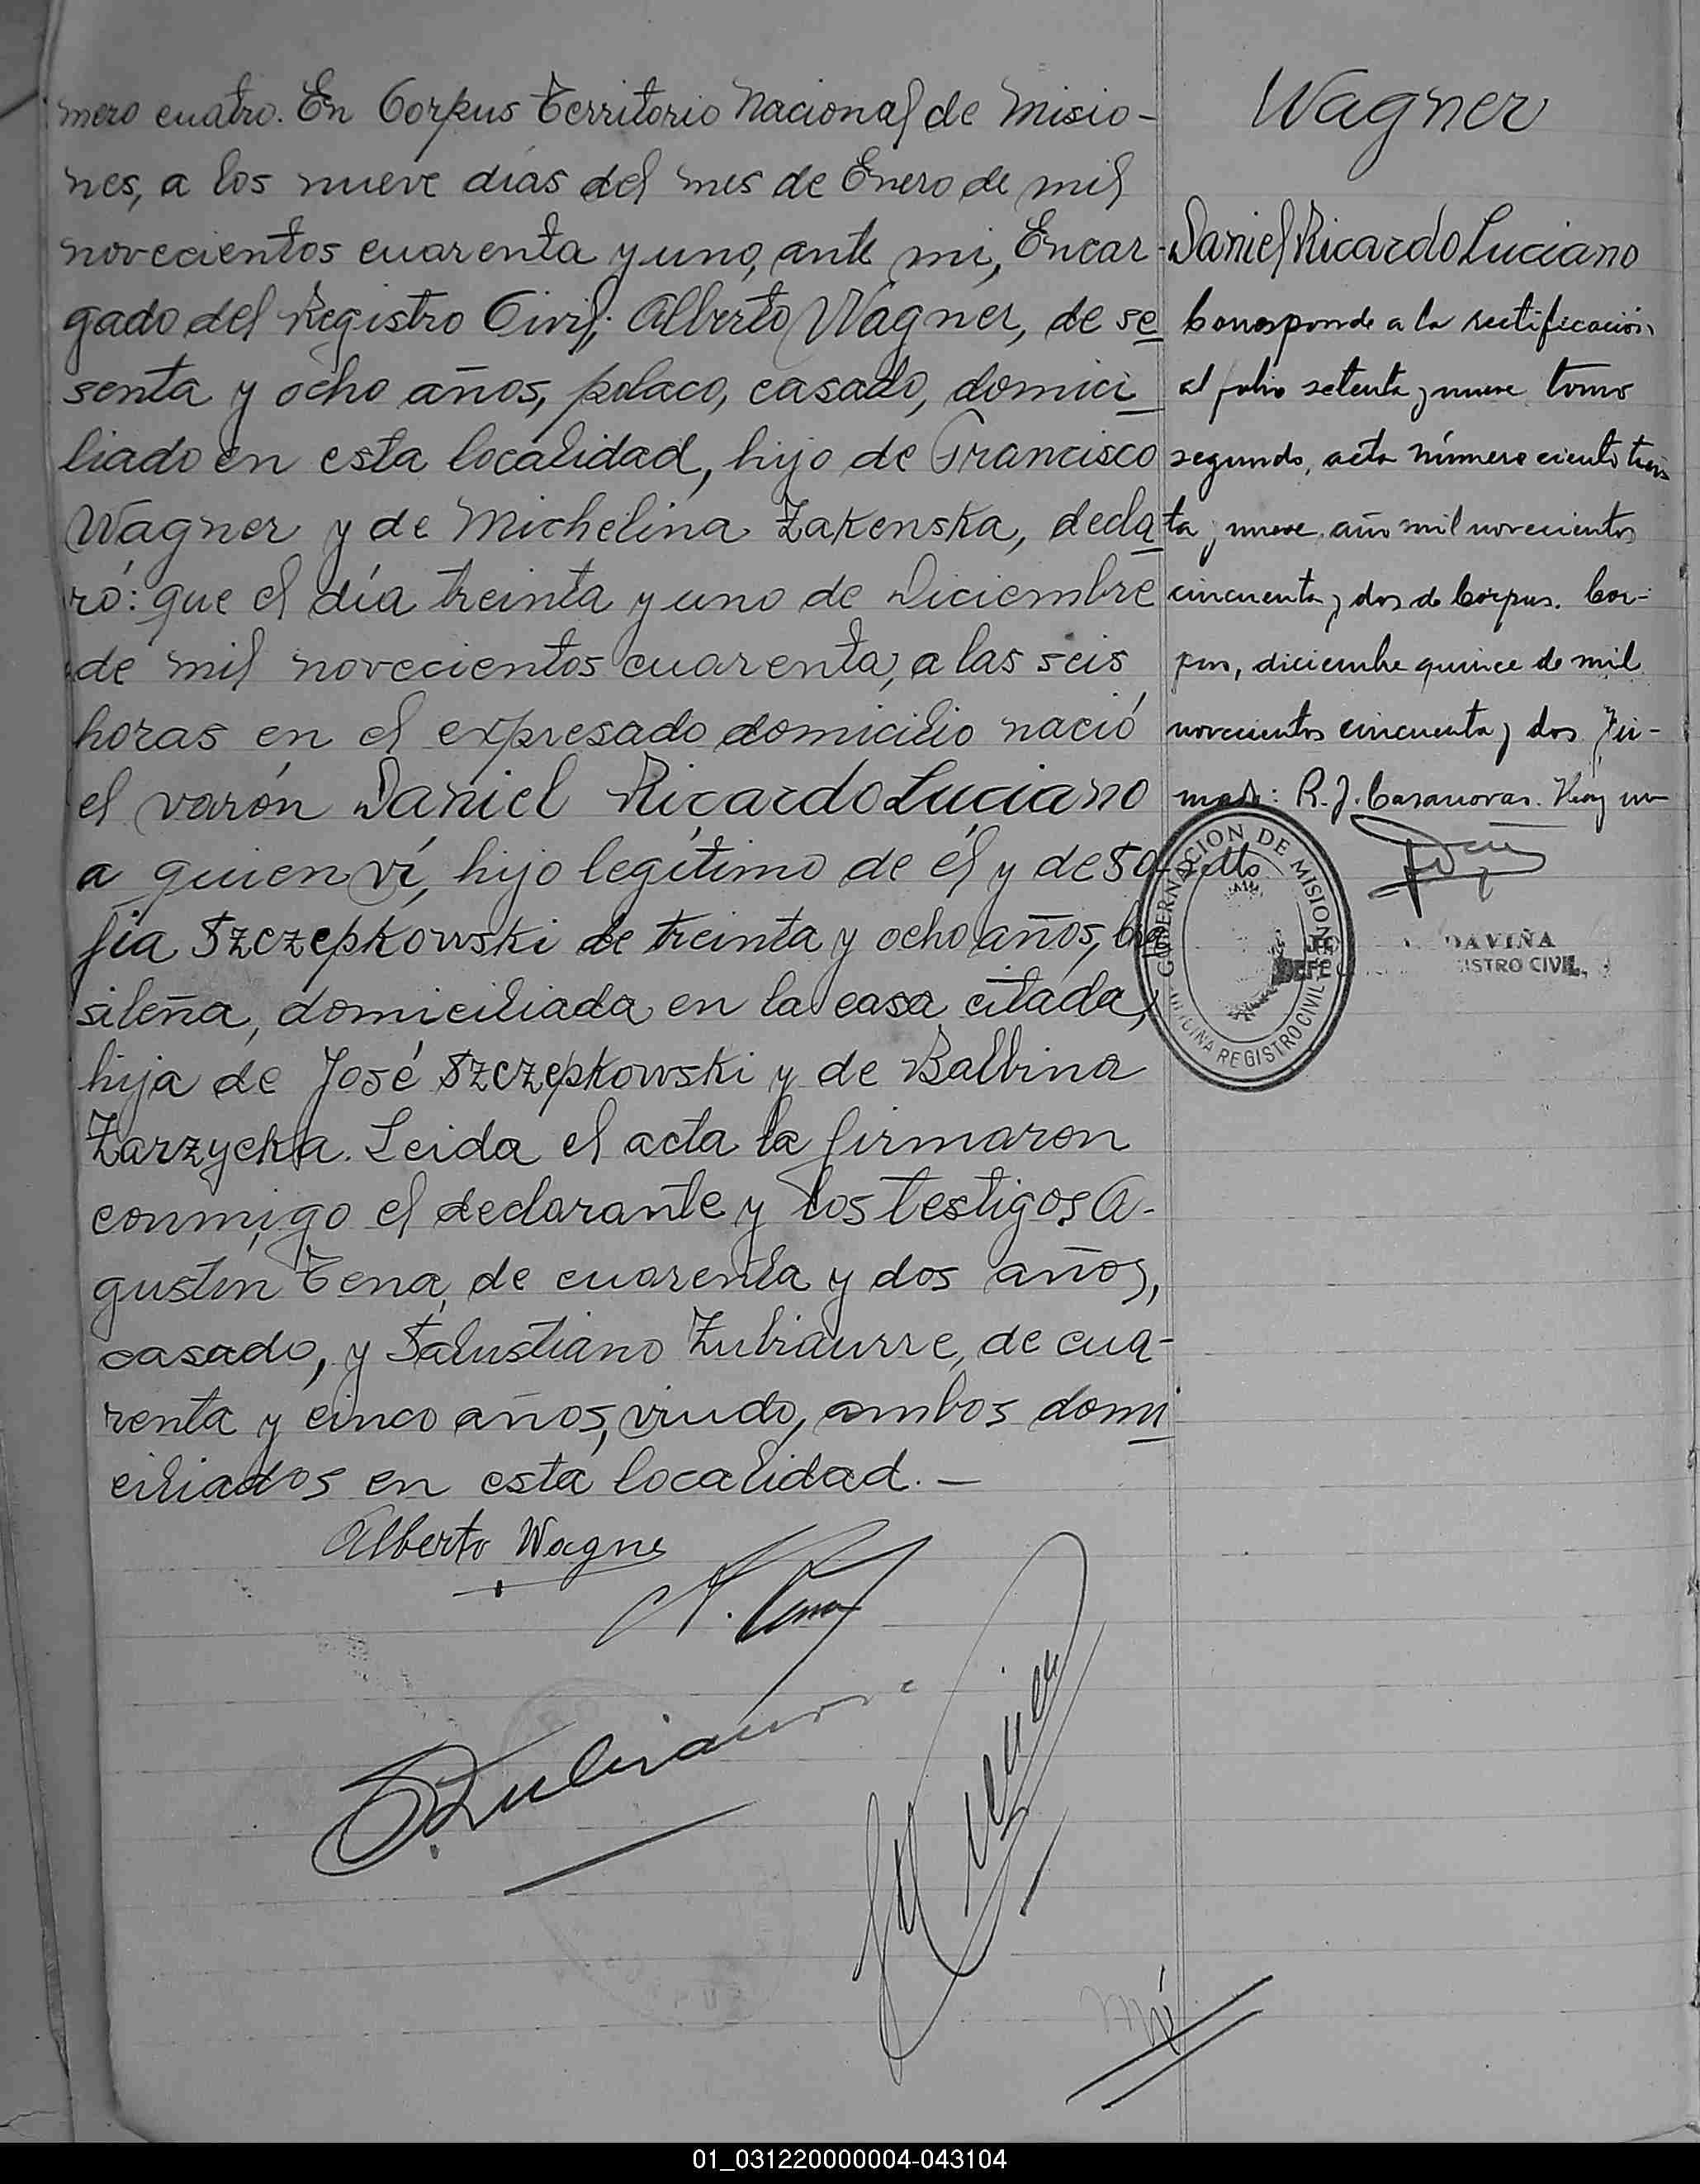 mero cuatro. En Corpus Territorio Nacional de Misio-
nes, a los nueve días del mes de Enero de mil
novecientos cuarenta y uno, ante mi, Encar-
gado del Registro Civil; Alberto Wagner, de se
senta y ocho años, polaco, casado, domici
liado en esta localidad, hijo de Francisco
Wagner y de Michelina Zakenska, decla
ró: que el día treinta y uno de Diciembre
de mil novecientos cuarenta, a las seis
horas en el expresado domicilio nació
el varón Daniel Ricardo Luciano
a quien ví, hijo legítimo de él y de So-
fia Szczepkowski de treinta y ocho años, bra
sileña, domiciliada en la casa citada,
hija de José Szczepkowski y de Balbina
Zarzycka. Leida el acta la firmaron
conmigo el declarante y los testigos A-
gustin Tena, de cuarenta y dos años,
casado, y Salustiano Zubiaurre, de cua-
renta y cinco años, viudo, ambos domi
ciliados en esta localidad.—
Alberto Wagner
A. Tena
S. Zubiaurre
Wagner
Daniel Ricardo Luciano
Corresponde a la rectificación
al folio setenta y nueve tomo
segundo, acta número ciento trein
ta y nueve año mil novecientos
cincuenta y dos de Corpus. Cor-
pus, diciembre quince de mil
novecientos cincuenta y dos Fir-
mado: R. J. Casanovas. Hay un
sello
GOBERNACION DE MISIONES
OFICINA REGISTRO CIVIL
JEFE
DAVIÑA
ISTRO CIVIL
01_031220000004-043104